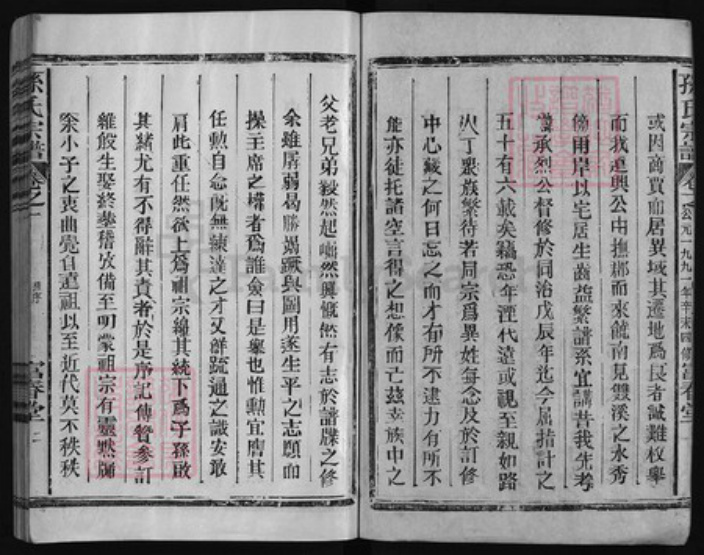 孫氏宗譜 卷 公元一九九一年辛未四修 富春堂
或因商賈而居異域其遷地為良者誠難枚舉
而我運興公由撫郡而來饒南見雙溪之水秀
傍兩岸以宅居生齒益繁譜系宜講昔我先考
承烈公督修於同治戊辰年迄今屈指計之
五十有六載矣竊恐年湮代遠或視至親如路
人丁眾族繁待若同宗為異姓每念及於訂修
中心藏之何日忘之而才有所不逮力有所不
能亦徒托諸空言得之想像而亡茲幸族中之
父老兄弟毅然起慨然興慨然有志於譜牒之修
余雖孱弱曷勝竭蹶與圖用遂生平之志願而
操主席之權者為誰僉曰是舉也惟勳宜膺其
任勳自念既無練達之才又鮮疏通之識安敢
肩此重任然欲上為祖宗綿其統下為子孫啟
其緒尤有不得辭其責者於是序記傳贊參訂
維殷生娶終塟稽攷備至明蒙祖宗有靈默牖
余小子之衷曲覺自遠祖以至近代莫不秩秩
孫氏宗譜 卷之一 富春堂